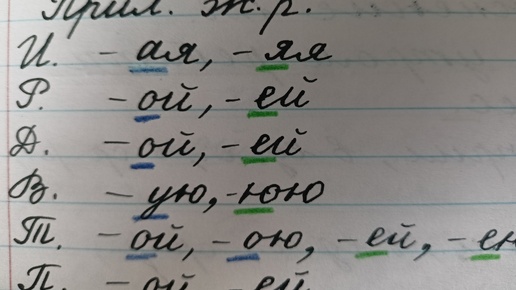 Прил. ж.р.
И. -ая, -яя
Р. -ой, -ей
Д. -ой, -ей
В. -ую, -юю
Т. -ой, -ою, -ей, -ею
П. -ой -ей